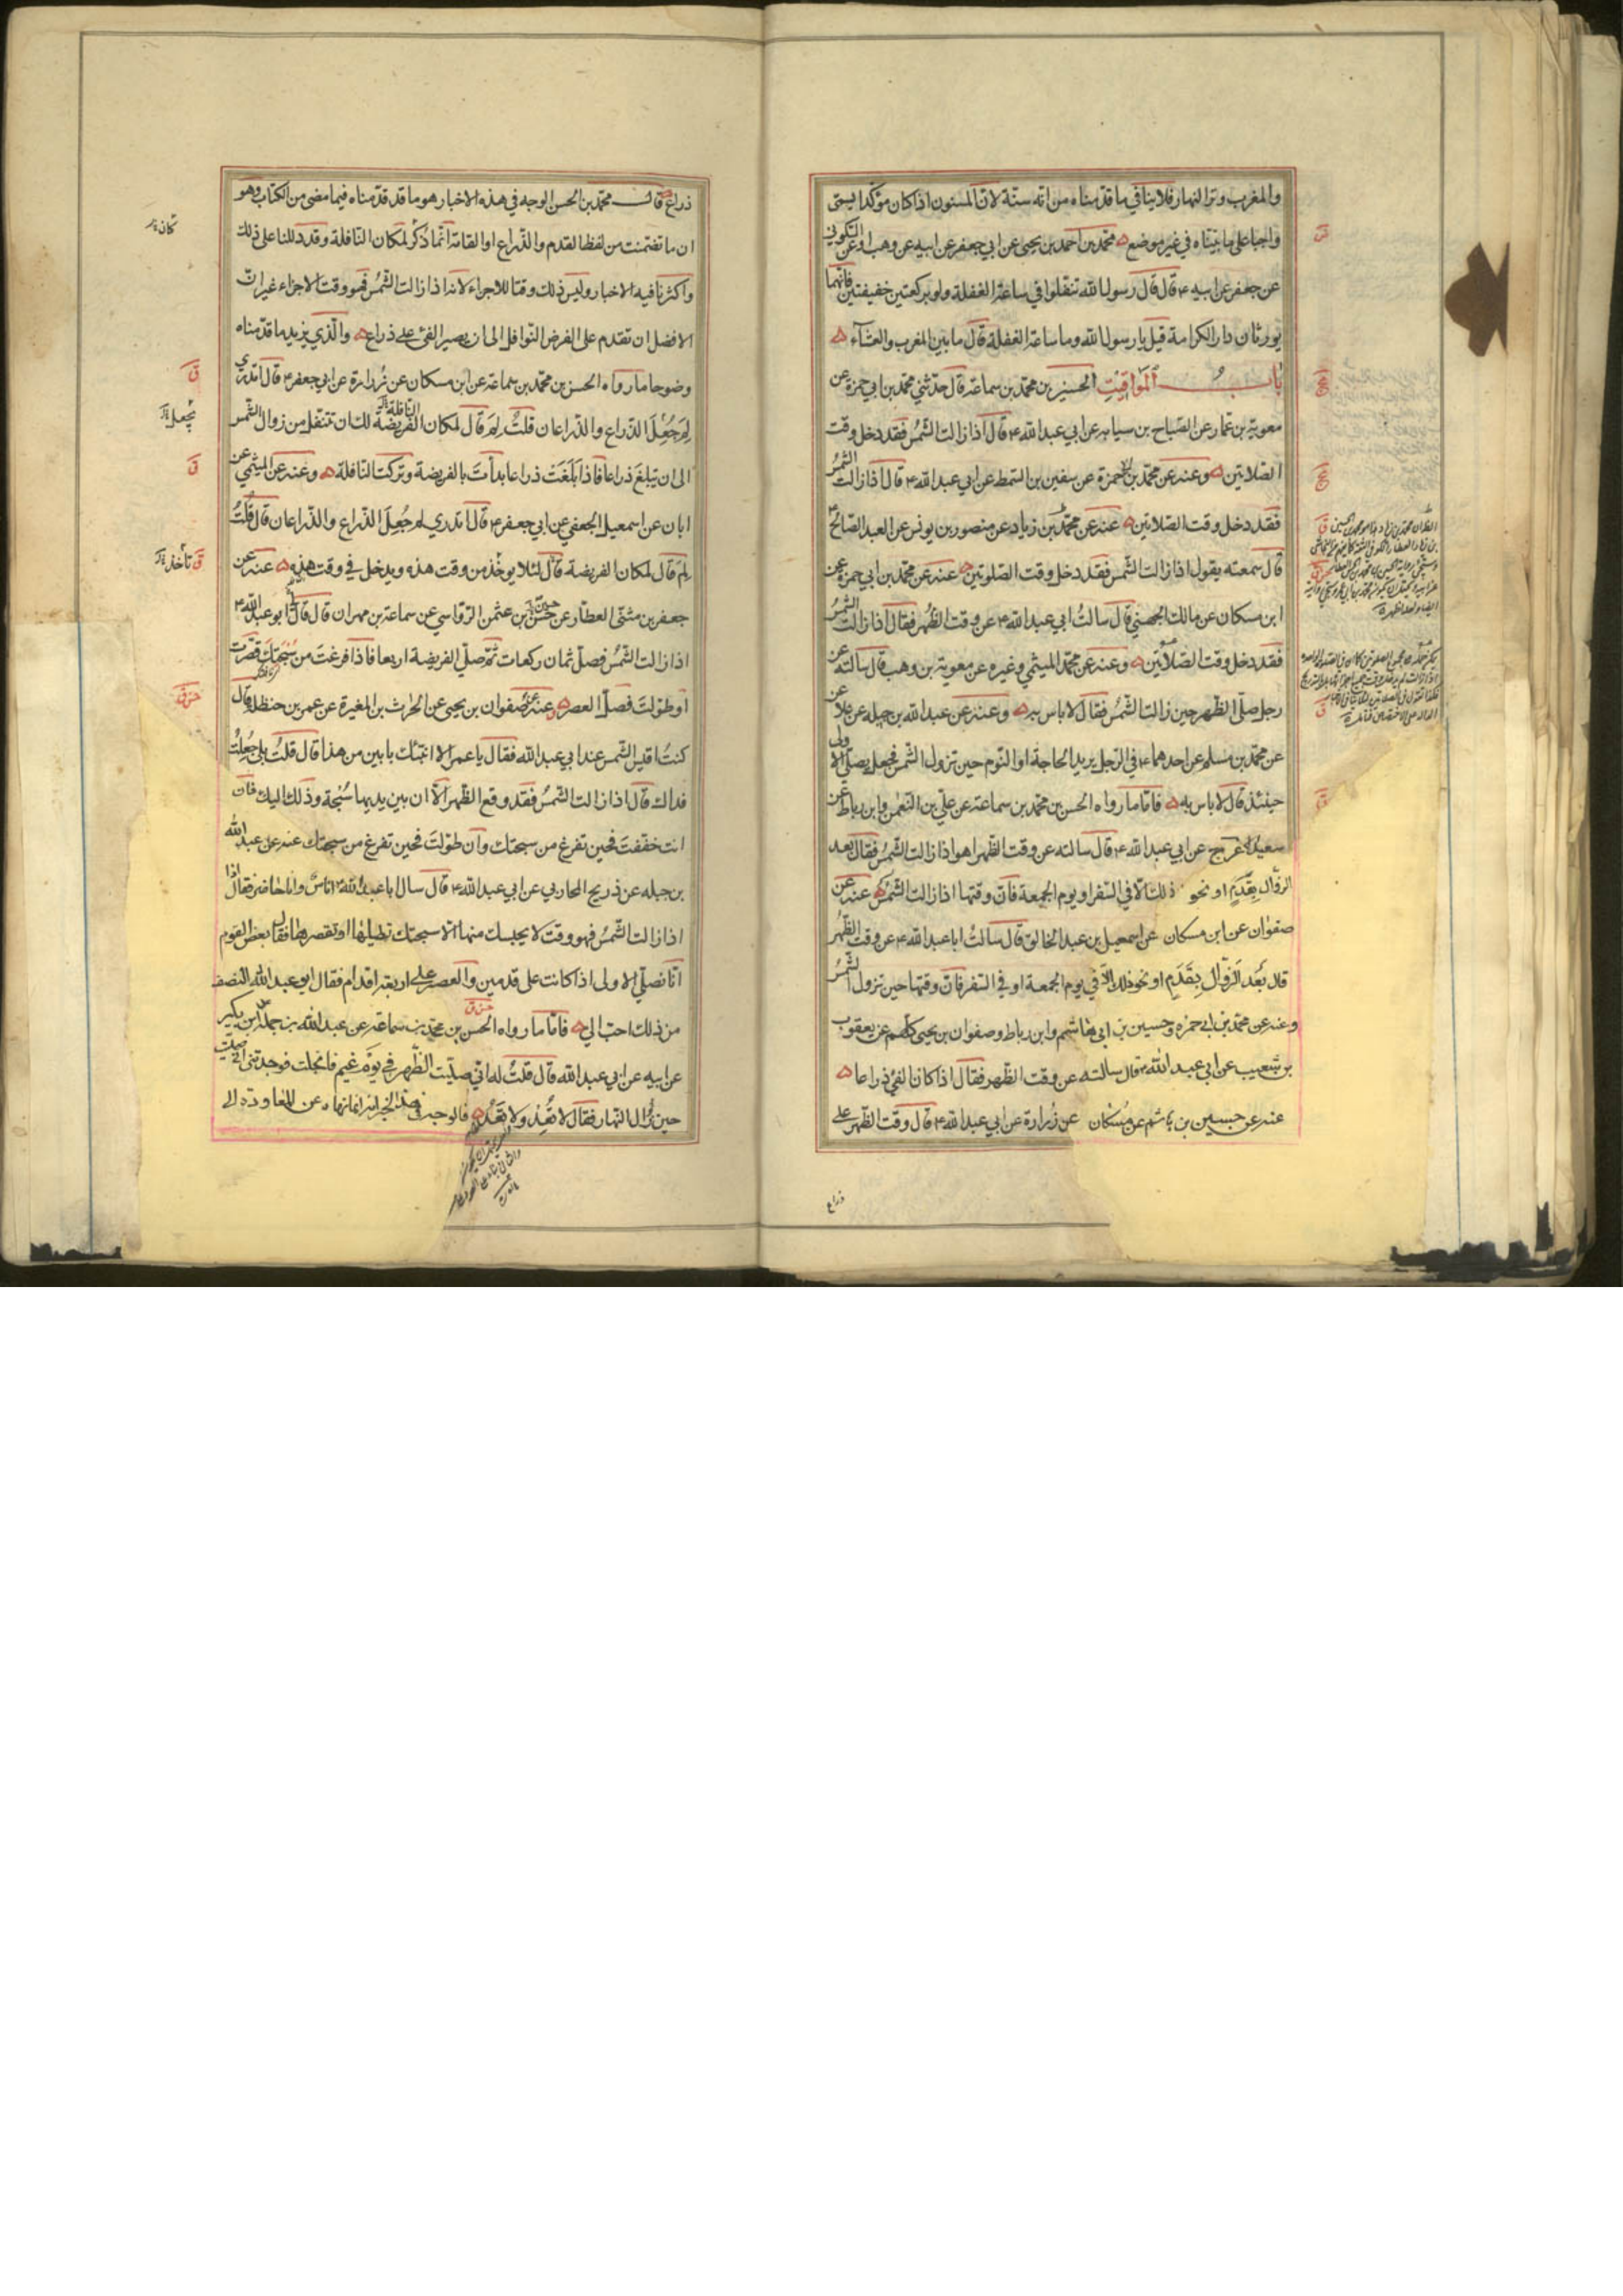 والمغرب وتر النهار فلاينافي ما قدمناه من انه سنة لان المسنون اذا كان مؤكدا يستى
واجبا على ما بيناه في غير موضع محمد بن احمد بن يحيى عن ابي جعفر عن ابيه عن وهب او عن السكوني
عن جعفر عن ابيه ع قال قال رسول الله تنفلوا في ساعة الغفلة ولو بركعتين خفيفتين فانهما
يورثان دار الكرامة قيل يا رسول الله وما ساعة الغفلة قال ما بين المغرب والعشاء
باب المواقيت الحسن بن محمد بن سماعة قال حدثني محمد بن ابي حمزة عن
معوية بن عمار عن الصباح بن سيابه عن ابي عبدالله ع قال اذا زالت الشمس فقد دخل وقت
الصلاتين وعنه عن محمد بن ابي حمزة عن سفين بن السمط عن ابي عبدالله ع قال اذا زالت الشمس
فقد دخل وقت الصلاتين عنه عن محمد بن زياد عن منصور بن يونس عن العبد الصالح ع
قال سمعته يقول اذا زالت الشمس فقد دخل وقت الصلوتين عنه عن محمد بن ابي حمزة عن
ابن مسكان عن مالك الجهني قال سالت ابي عبدالله ع عن وقت الظهر فقال اذا زالت الشمس
فقد دخل وقت الصلاتين وعنه عن محمد الميثمي وغيره عن معوية بن وهب قال سالته عن
رجل صلى الظهر حين زالت الشمس فقال لا باس به وعنه عن عبدالله بن جبله عن علا عن
عن محمد بن مسلم عن احدهما ع في الرجل يريد الحاجة او النوم حين تزول الشمس فجعل يصلى الاولى
حينئذ قال لا باس به فاما ما رواه الحسن بن محمد بن سماعة عن علي بن النعمن وابن رباط عن
سعيد الاعرج عن ابي عبدالله ع قال سالته عن وقت الظهر اهو اذا زالت الشمس فقال بعد
الزوال بقدم او نحو ذلك الا في السفر او يوم الجمعة فان وقتها اذا زالت الشمس عنه عن
صفوان عن ابن مسكان عن اسمعيل بن عبد الخالق قال سالت ابا عبدالله ع عن وقت الظهر
قال بعد الزوال بقدم او نحو ذلك الا في يوم الجمعة او في السفر فان وقتها حين تزول الشمس
وعنه عن محمد بن ابي حمزه وحسين بن ابي هاشم وابن رباط وصفوان بن يحيى كلهم عن يعقوب
بن شعيب عن ابي عبد الله ع قال سالته عن وقت الظهر فقال اذا كان الفئ ذراعا
عنه عن حسين بن هاشم عن مسكان عن زرارة عن ابي عبدالله ع قال وقت الظهر على
ذراع
ذراع قال محمد بن الحسن الوجه في هذه الاخبار هو ما قد قدمناه فيما مضى من الكتاب وهو
ان ما تضمنت من لفظ القدم والذراع او القامة انما ذكر لمكان النافلة وقد دللنا على ذلك
واكثرنا فيه الاخبار وليس ذلك وقتا للاجزاء لانه اذا زالت الشمس فهو وقت الاجزاء غير ان
الافضل ان تقدم على الفرض النوافل الى ان يصير الفئ على ذراع والذي يزيد ما قدمناه
وضوحا ما رواه الحسن بن محمد بن سماعة عن ابن مسكان عن زرارة عن ابي جعفر ع قال اتدري
لم جعل الذراع والذراعان قلت لم قال لمكان الفريضة لك ان تتنفل من زوال الشمس
النافلة
يجعل
الى ان يبلغ ذراعا فاذا بلغت ذراعا بدأت بالفريضة وتركت النافلة وعنه عن الميثمي عن
ابان عن اسمعيل الجعفي عن ابي جعفر ع قال اتدري لم جعل الذراع والذراعان قال قلت
لم قال لمكان الفريضة قال لئلا يوخذ من وقت هذه ويدخل في وقت هذه عنه عن
تأخذ
جعفر بن مثنى العطار عن حسن بن عثمن الرقاسي عن سماعة بن مهران قال قال ابو عبدالله ع
اذا زالت الشمس فصل ثمان ركعات ثم صلى الفريضة اربعا فاذا فرغت من سبحتك قصرت
او طولت فصل العصر وعنه عن صفوان بن يحيى عن الحارث بن المغيرة عن عمر بن حنظلة قال
كنت اقيس الشمس عند ابي عبدالله فقال يا عمر الا انبئك بابين من هذا قال قلت بلى جعلت
فداك قال اذا زالت الشمس فقد وقع الظهر الا ان بين يديها سبحة وذلك اليك فان
انت خففت فحين تفرغ من سبحتك وان طولت فحين تفرغ من سبحتك عنه عن عبدالله
بن جبله عن ذريح المحاربي عن ابي عبدالله ع قال سال ابا عبدالله ع اناس وانا حاضر فقال اذا
اذا زالت الشمس فهو وقت لا يحبسك منها الا سبحتك تطيلها او تقصرها فقال بعض القوم
انا نصلي الاولى اذا كانت على قدمين والعصر على اربعة اقدام فقال ابو عبدالله النصف
من ذلك احب الي فاما ما رواه الحسن بن محمد بن سماعة عن عبدالله بن جبلة عن ابن بكير
عن ابيه عن ابي عبدالله قال قلت له اني صليت الظهر في يوم غيم فانجلت فوجدتني اني صليت
حين زال النهار فقال لا تعد ولا تعد فالوجه في هذا الخبر انه انما نهاه عن المعاودة الى